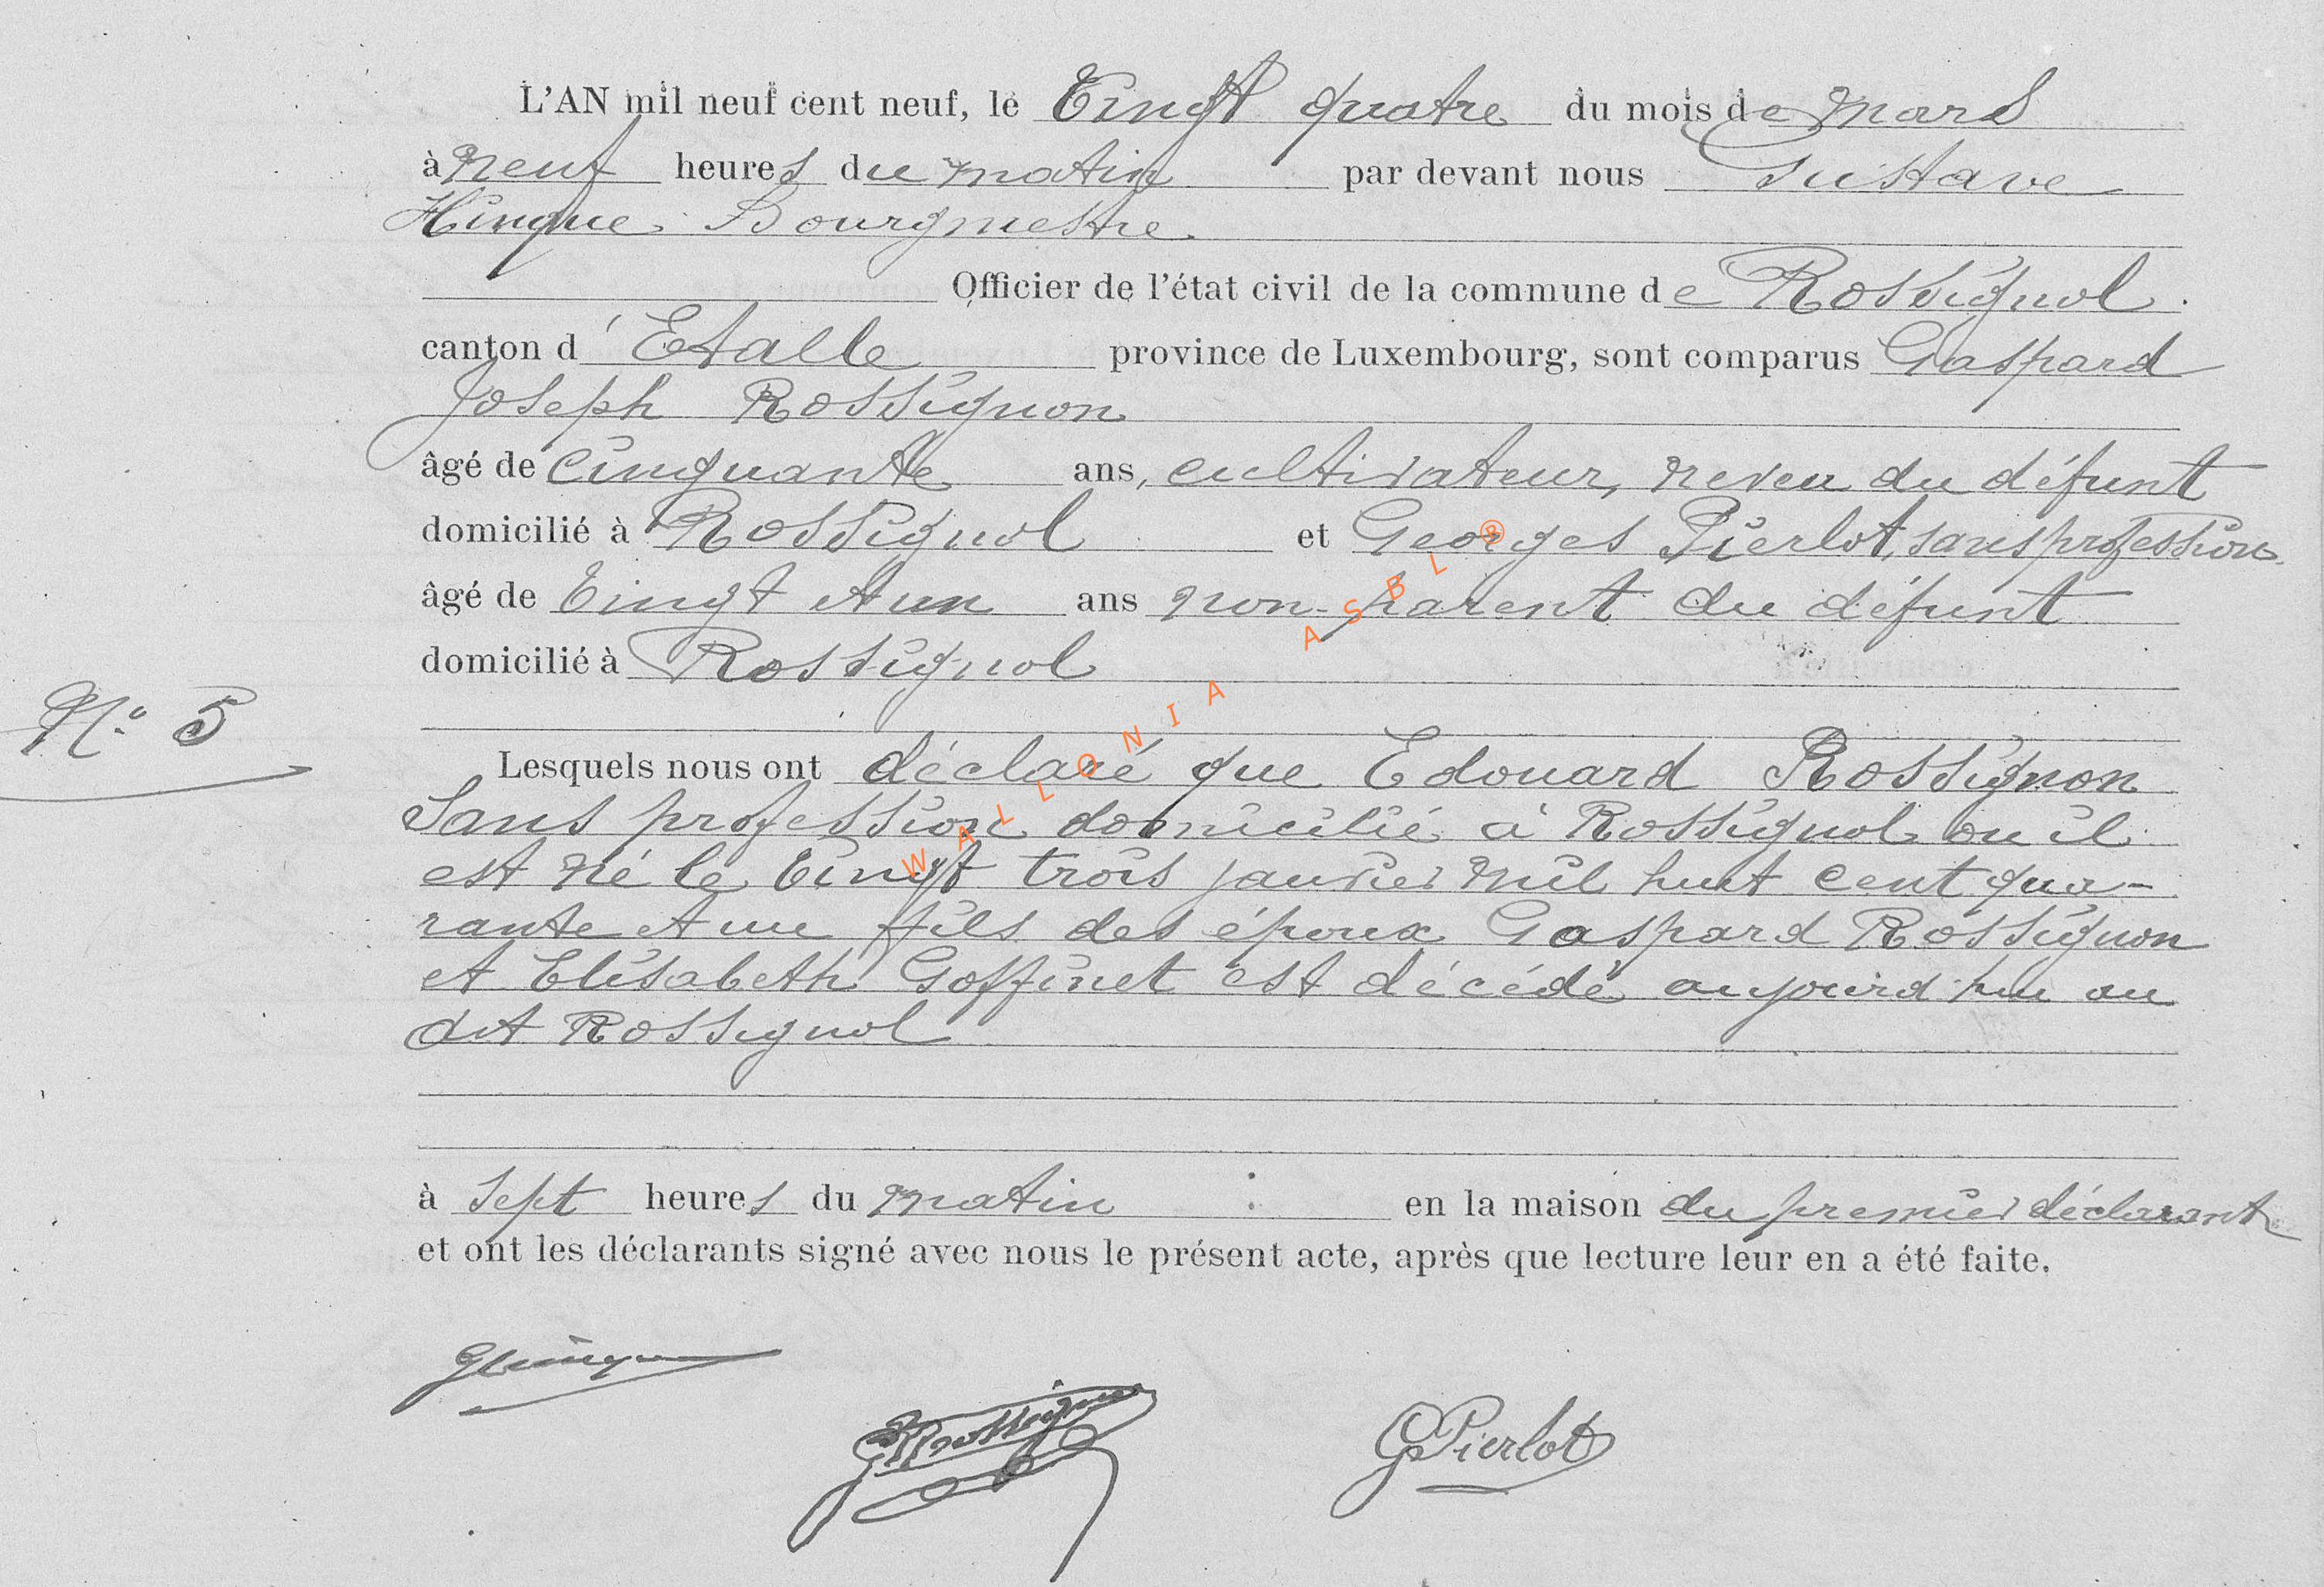 L'AN mil neuf cent neuf, le Vingt quatre du mois de Mars
à neuf heures du matin par devant nous Gustave
Hinque Bourgmestre
Officier de l'état civil de la commune de Rossignol
canton d'Etalle province de Luxembourg, sont comparus Gaspard
Joseph Rossignon
âgé de cinquante ans, cultivateur, neveu du défunt
domicilié à Rossignol et Georges Pierlot, sans profession
âgé de vingt et un ans non parent du défunt
domicilié à Rossignol
N° 5
Lesquels nous ont déclaré que Edouard Rossignon
Sans profession domicilié à Rossignol ou il
est né le vingt trois janvier mil huit cent qua-
rante et un fils des époux Gaspard Rossignon
et Elisabeth Goffinet est décédé aujourd'hui au
dit Rossignol
à sept heures du matin en la maison du premier déclarant
et ont les déclarants signé avec nous le présent acte, après que lecture leur en a été faite.
GHinque
GRossignon
GPierlot
WALLONIA ASBL ®